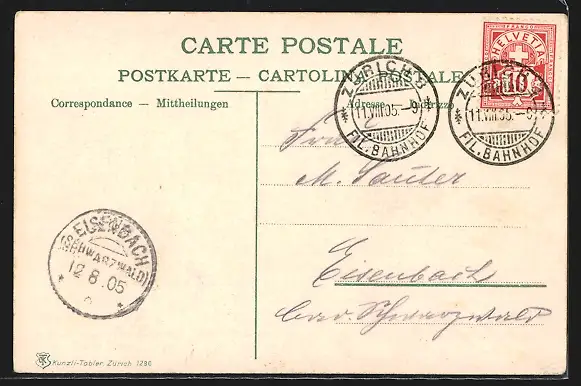 CARTE POSTALE
POSTKARTE — CARTOLINA POSTALE
Correspondance — Mittheilungen
Adresse — Indirizzo
FRANCO
HELVETIA
10
ZÜRICH 3
11.VIII.05.–9
FIL. BAHNHOF
ZÜRICH 3
11.VIII.05.–9
FIL. BAHNHOF
M. Sauter
Eisenbach
bad. Schwarzwald
EISENBACH
(SCHWARZWALD)
12 8.05
Künzli-Tobler, Zürich 1296